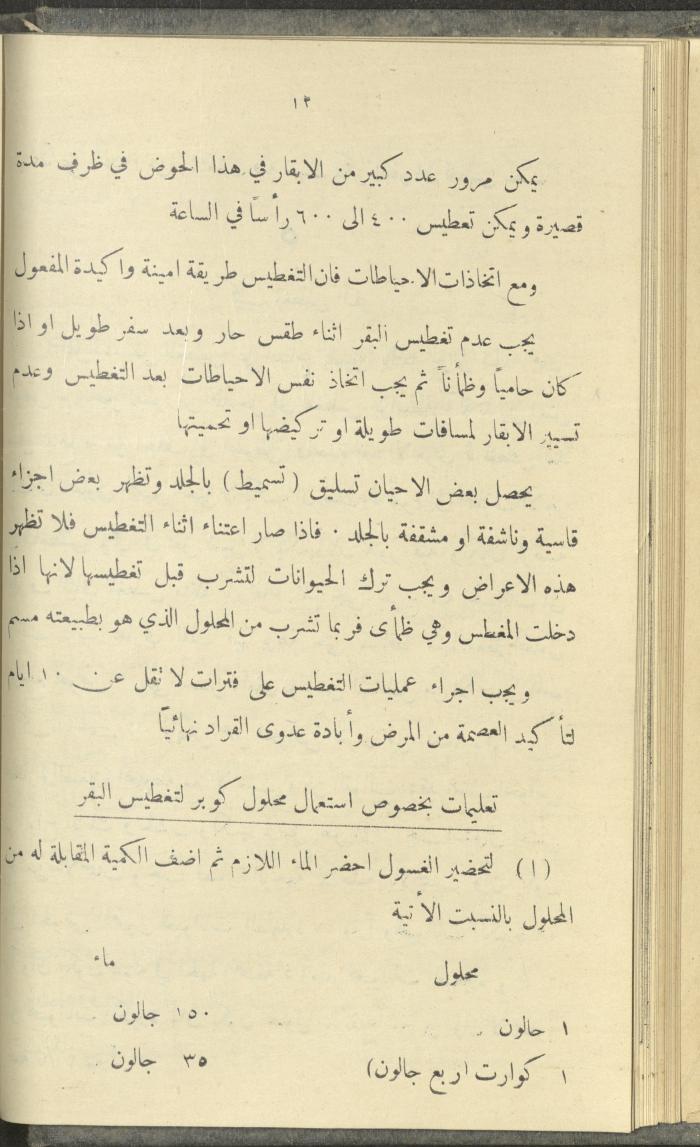 ١٣
يمكن مرور عدد كبير من الابقار في هذا الحوض في ظرف مدة
قصيرة ويمكن تعطيس ٤٠٠ الى ٦٠٠ رأساً في الساعة
ومع اتخاذات الاحياطات فان التغطيس طريقة امينة واكيدة المفعول
يجب عدم تغطيس البقر اثناء طقس حار وبعد سفر طويل او اذا
كان حامياً وظمأناً ثم يجب اتخاذ نفس الاحياطات بعد التغطيس وعدم
تسيير الابقار لمسافات طويلة او تركيضها او تحميتها
يحصل بعض الاحيان تسليق (تسميط) بالجلد وتظهر بعض اجزاء
قاسية وناشفة او مشققة بالجلد · فاذا صار اعتناء اثناء التغطيس فلا تظهر
هذه الاعراض ويجب ترك الحيوانات لتشرب قبل تغطيسها لانها اذا
دخلت المغطس وهي ظمأى فربما تشرب من المحلول الذي هو بطبيعته مسم
ويجب اجراء عمليات التغطيس على فترات لا تقل عن ١٠ ايام
لتأكيد العصمة من المرض وأبادة عدوى القراد نهائيّا
تعليمات بخصوص استعمال محلول كوبر لتغطيس البقر
(١) لتحضير الغسول احضر الماء اللازم ثم اضف الكمية المقابلة له من
المحلول بالنسبت الأتية
محلول ماء
١ جالون ١٥٠ جالون
١ كوارت اربع جالون) ٣٥ جالون